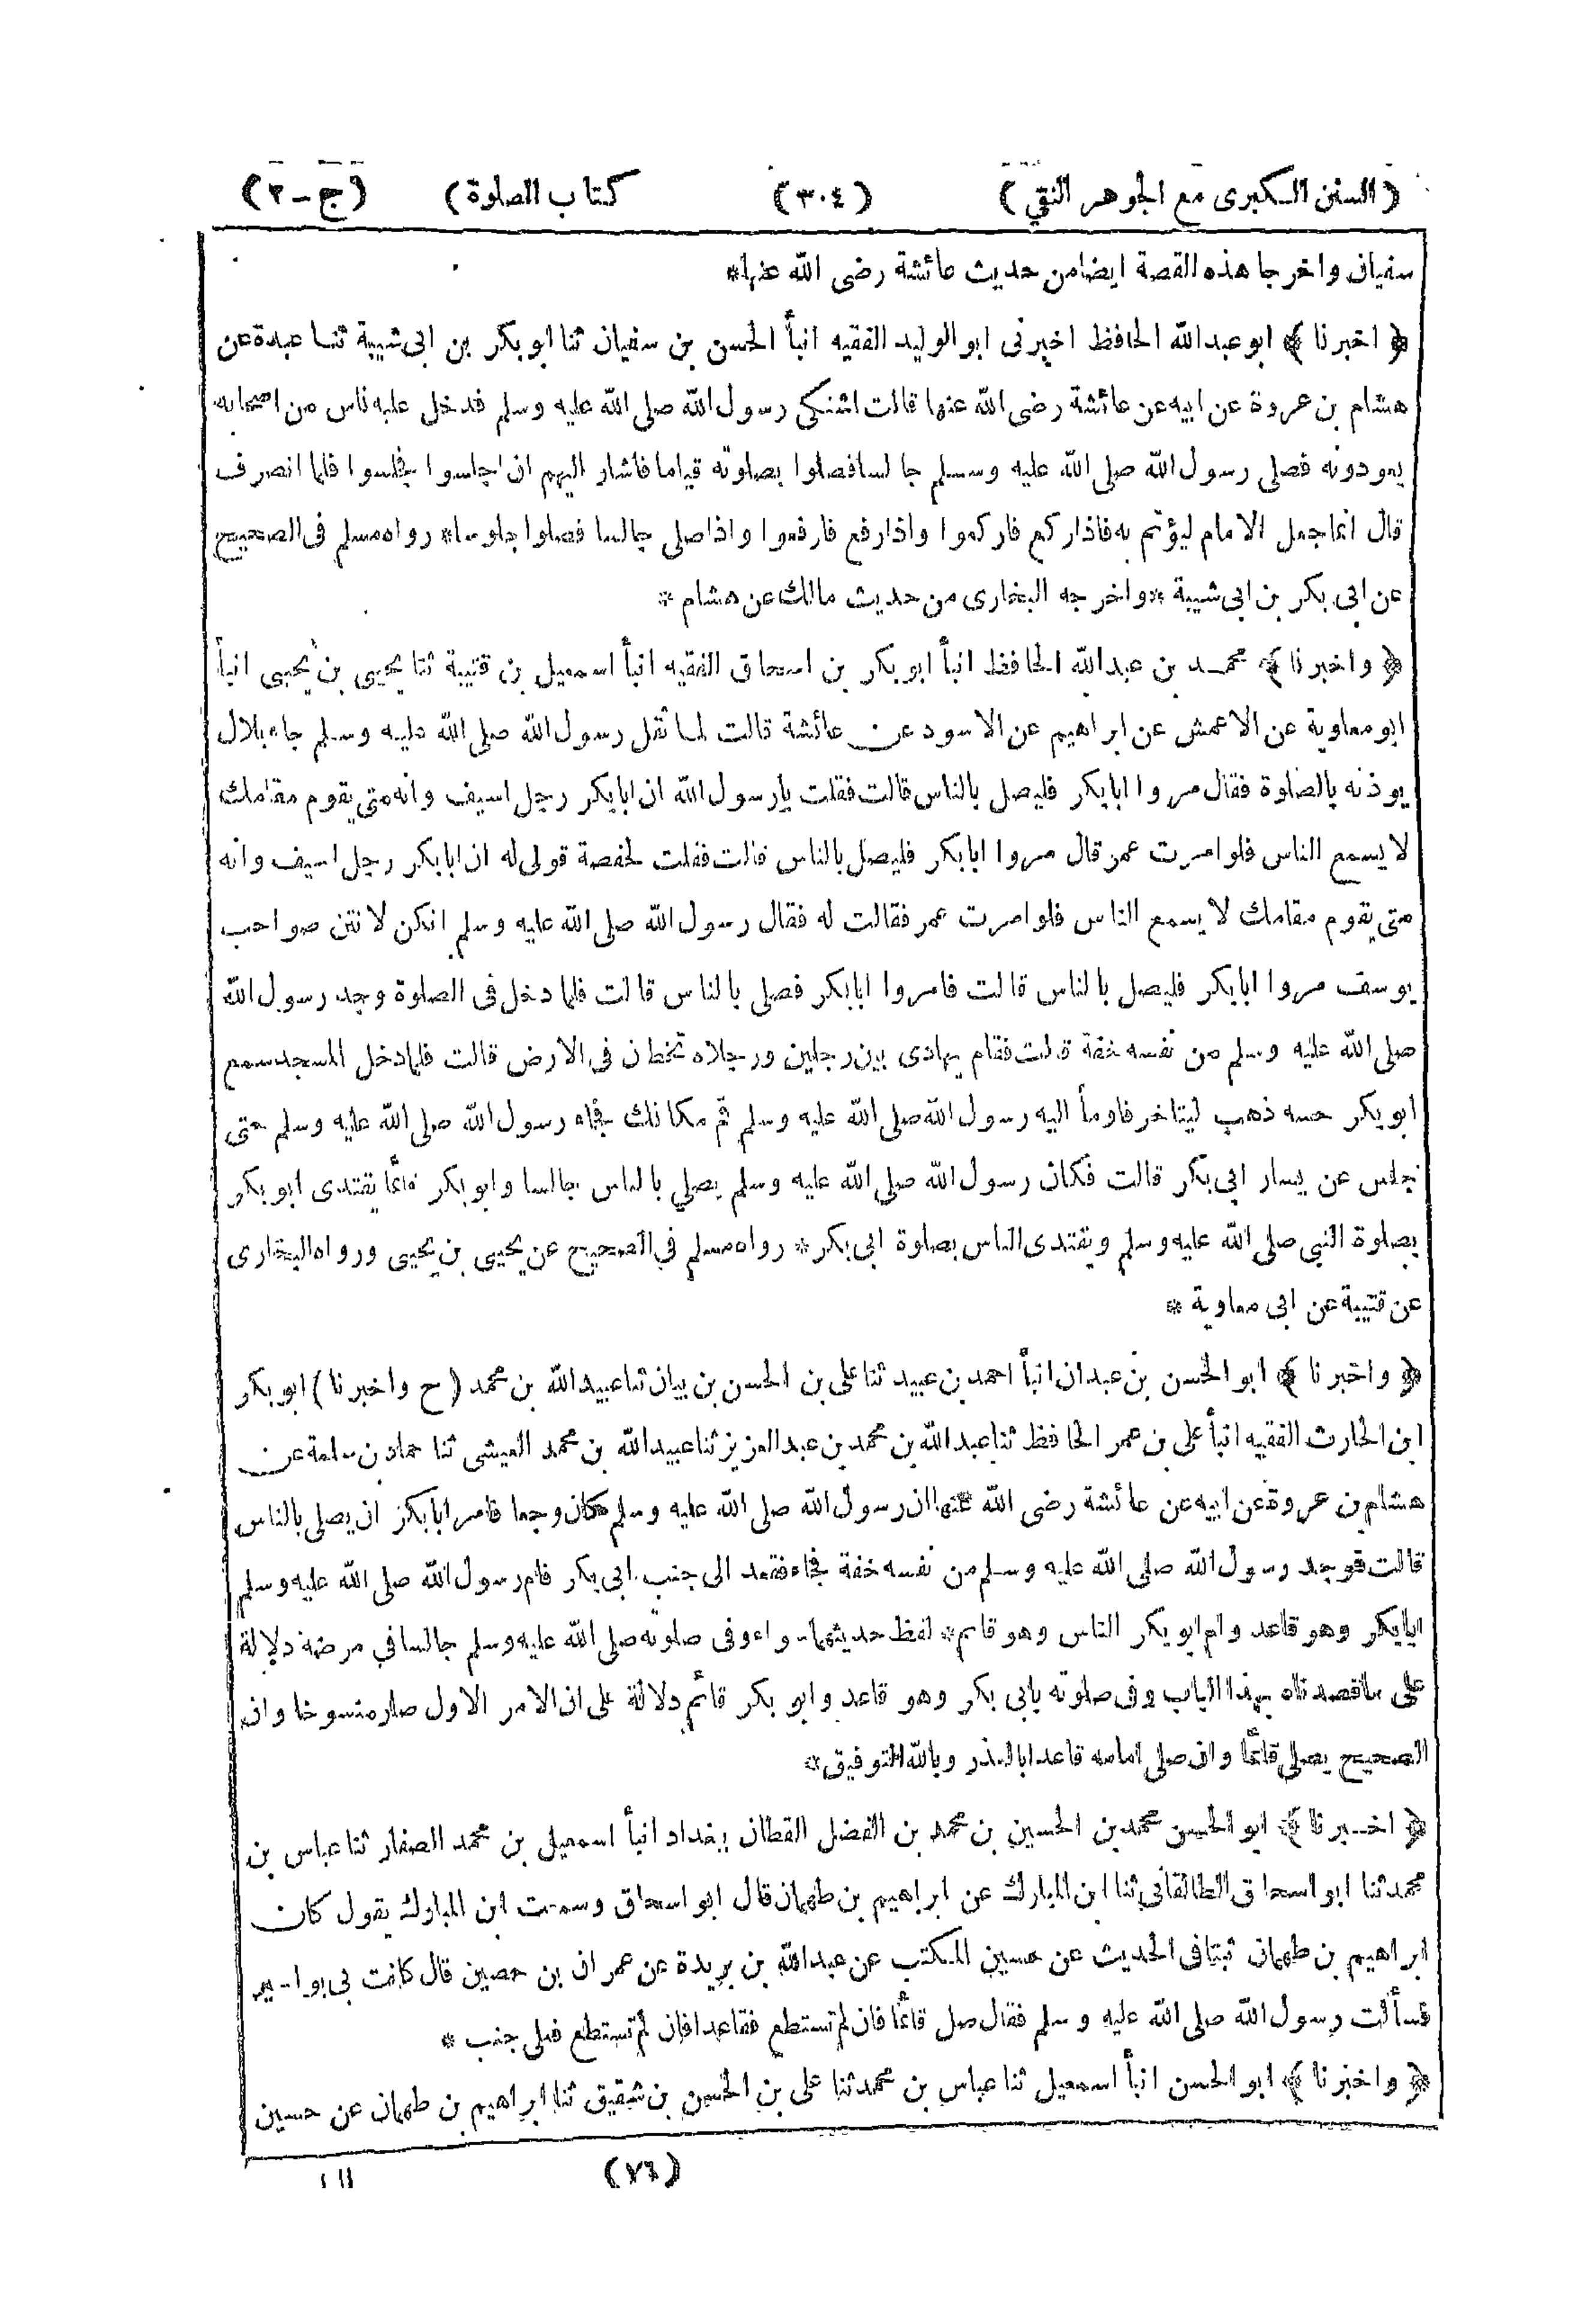 (السنن الكبرى مع الجوهر النقي) (٣٠٤) كتاب الصلوة) (ج-٢)
سفيان واخرجا هذه القصة ايضا من حديث عائشة رضى الله عنها*
﴿ اخبرنا ﴾ ابو عبدالله الحافظ اخبرنى ابو الوليد الفقيه انبأ الحسن بن سفيان ثنا ابو بكر بن ابى شيبة ثنا عبدة عن
هشام بن عروة عن ابيه عن عائشة رضى الله عنها قالت اشتكى رسول الله صلى الله عليه وسلم فدخل عليه ناس من اصحابه
يعودونه فصلى رسول الله صلى الله عليه وسلم جالسا فصلوا بصلوته قياما فاشار اليهم ان اجلسوا فجلسوا فلما انصرف
قال انما جعل الامام ليؤتم به فاذا ركع فاركعوا واذا رفع فارفعوا واذا صلى جالسا فصلوا جلوسا* رواه مسلم فى الصحيح
عن ابى بكر بن ابى شيبة *واخرجه البخارى من حديث مالك عن هشام *
﴿ واخبرنا ﴾ محمد بن عبدالله الحافظ انبأ ابو بكر بن اسحاق الفقيه انبأ اسمعيل بن قتيبة ثنا يحيى بن يحيى انبأ
ابو معاوية عن الاعمش عن ابراهيم عن الاسود عن عائشة قالت لما ثقل رسول الله صلى الله عليه وسلم جاء بلال
يوذنه بالصلوة فقال مروا ابابكر فليصل بالناس قالت فقلت يارسول الله ان ابابكر رجل اسيف وانه متى يقوم مقامك
لا يسمع الناس فلو امرت عمر قال مروا ابابكر فليصل بالناس قالت فقلت لحفصة قولى له ان ابابكر رجل اسيف وانه
متى يقوم مقامك لا يسمع الناس فلو امرت عمر فقالت له فقال رسول الله صلى الله عليه وسلم انكن لانتن صواحب
يوسف مروا ابابكر فليصل بالناس قالت فامروا ابابكر فصلى بالناس قالت فلما دخل فى الصلوة وجد رسول الله
صلى الله عليه وسلم من نفسه خفة قالت فقام يهادى بين رجلين ورجلاه تخطان فى الارض قالت فلما دخل المسجد سمع
ابو بكر حسه ذهب ليتاخر فاومأ اليه رسول الله صلى الله عليه وسلم قم مكانك فجاء رسول الله صلى الله عليه وسلم حتى
جلس عن يسار ابى بكر قالت فكان رسول الله صلى الله عليه وسلم يصلي بالناس جالسا وابو بكر قائما يقتدى ابو بكر
بصلوة النبي صلى الله عليه وسلم ويقتدى الناس بصلوة ابى بكر* رواه مسلم في الصحيح عن يحيى بن يحيى ورواه البخارى
عن قتيبة عن ابى معاوية *
﴿ واخبرنا ﴾ ابو الحسن بن عبدان انبأ احمد بن عبيد ثنا على بن الحسن بن بيان ثنا عبيدالله بن محمد (ح واخبرنا) ابو بكر
ابن الحارث الفقيه انبأ على بن عمر الحافظ ثنا عبدالله بن محمد بن عبد العزيز ثنا عبيدالله بن محمد العيشى ثنا حماد بن سلمة عن
هشام بن عروة عن ابيه عن عائشة رضى الله عنها ان رسول الله صلى الله عليه وسلم كان وجعا فامر ابابكر ان يصلى بالناس
قالت فوجد رسول الله صلى الله عليه وسلم من نفسه خفة فجاء فقعد الى جنب ابى بكر فام رسول الله صلى الله عليه وسلم
ابابكر وهو قاعد وام ابو بكر الناس وهو قائم* لفظ حديثهما سواء وفى صلوته صلى الله عليه وسلم جالسا في مرضه دلالة
على ماقصدناه بهذا الباب وفى صلوته بابى بكر وهو قاعد وابو بكر قائم دلالة على ان الامر الاول صار منسوخا وان
الصحيح يصلى قائما وان صلى امامه قاعدا بالعذر وبالله التوفيق*
﴿ اخبرنا ﴾ ابو الحسن محمد بن الحسين بن محمد بن الفضل القطان ببغداد انبأ اسمعيل بن محمد الصفار ثنا عباس بن
محمد ثنا ابو اسحاق الطالقانى ثنا ابن المبارك عن ابراهيم بن طهمان قال ابو اسحاق وسمعت ابن المبارك يقول كان
ابراهيم بن طهمان ثبتا فى الحديث عن حسين المكتب عن عبدالله بن بريدة عن عمران بن حصين قال كانت بى بواسير
فسألت رسول الله صلى الله عليه وسلم فقال صل قائما فان لم تستطع فقاعدا فان لم تستطع فعلى جنب *
﴿ واخبرنا ﴾ ابو الحسن انبأ اسمعيل ثنا عباس بن محمد ثنا على بن الحسن بن شقيق ثنا ابراهيم بن طهمان عن حسين
(٧٦)